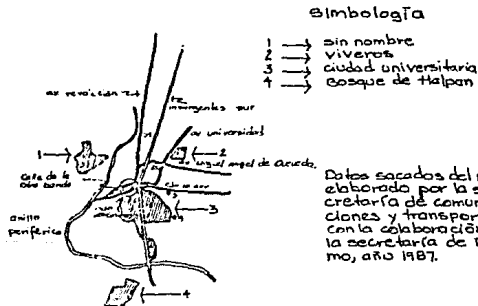 simbología
1 → sin nombre
2 → viveros
3 → ciudad universitaria
4 → Bosque de tlalpan
av revolución
insurgentes sur
av universidad
1 → ← 2
miguel angel de Quevedo.
Calle de la
otra banda
anillo
periférico
← 3
← 4
Datos sacados del
elaborado por la se
cretaría de comun
ciones y transpor
con la colaboración
la secretaría de
mo, año 1987.